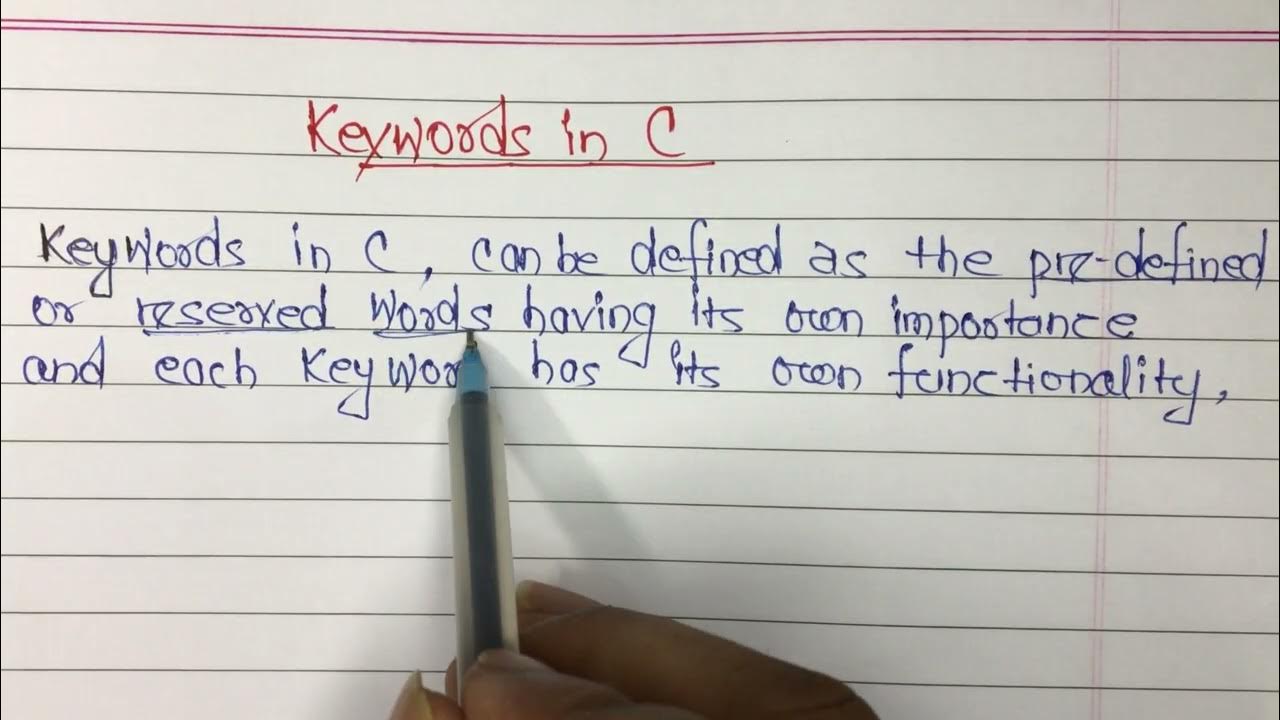 Keywords in C
Keywords in C, can be defined as the pre-defined
or reserved words having its own importance
and each Keyword has its own functionality,